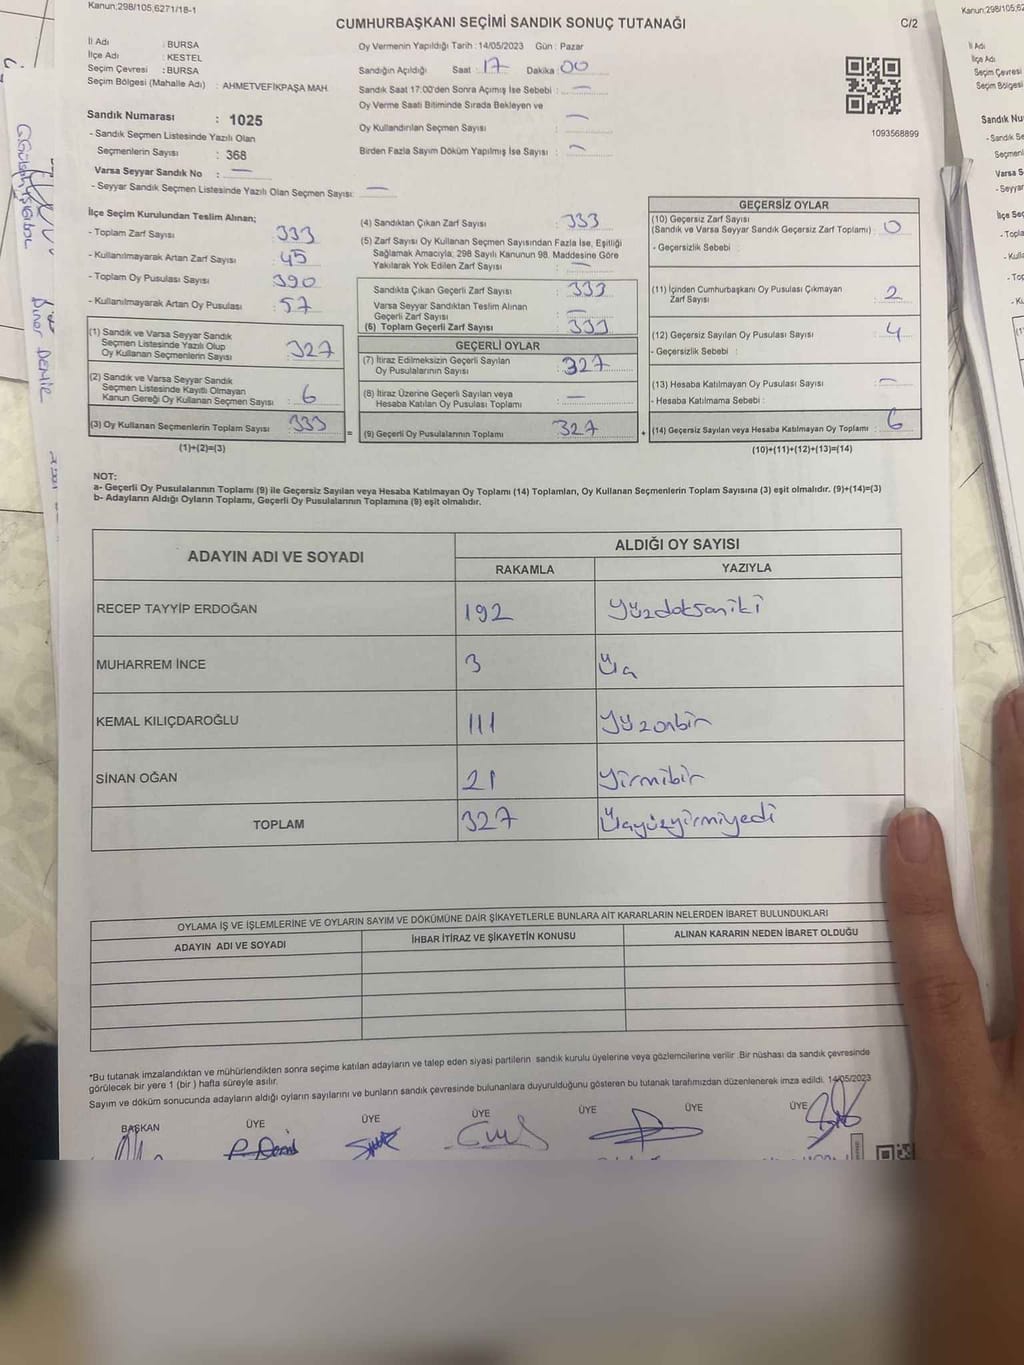 Kanun:298/105,6271/18-1
CUMHURBAŞKANI SEÇİMİ SANDIK SONUÇ TUTANAĞI
C/2
İl Adı : BURSA
İlçe Adı : KESTEL
Seçim Çevresi : BURSA
Seçim Bölgesi (Mahalle Adı) : AHMETVEFİKPAŞA MAH.
Oy Vermenin Yapıldığı Tarih : 14/05/2023 Gün : Pazar
Sandığın Açıldığı Saat : 17 Dakika : 00
Sandık Saat 17:00'den Sonra Açımış İse Sebebi : —
Oy Verme Saati Bitiminde Sırada Bekleyen ve
Oy Kullandırılan Seçmen Sayısı : —
Birden Fazla Sayım Döküm Yapılmış İse Sayısı : —
1093568899
Sandık Numarası : 1025
- Sandık Seçmen Listesinde Yazılı Olan
Seçmenlerin Sayısı : 368
Varsa Seyyar Sandık No : —
- Seyyar Sandık Seçmen Listesinde Yazılı Olan Seçmen Sayısı: —
İlçe Seçim Kurulundan Teslim Alınan;
- Toplam Zarf Sayısı : 333
- Kullanılmayarak Artan Zarf Sayısı : 45
- Toplam Oy Pusulası Sayısı : 390
- Kullanılmayarak Artan Oy Pusulası : 57
(1) Sandık ve Varsa Seyyar Sandık
Seçmen Listesinde Yazılı Olup
Oy Kullanan Seçmenlerin Sayısı : 327
(2) Sandık ve Varsa Seyyar Sandık
Seçmen Listesinde Kayıtlı Olmayan
Kanun Gereği Oy Kullanan Seçmen Sayısı : 6
(3) Oy Kullanan Seçmenlerin Toplam Sayısı : 333
(1)+(2)=(3)
(4) Sandıktan Çıkan Zarf Sayısı : 333
(5) Zarf Sayısı Oy Kullanan Seçmen Sayısından Fazla İse, Eşitliği
Sağlamak Amacıyla, 298 Sayılı Kanunun 98. Maddesine Göre
Yakılarak Yok Edilen Zarf Sayısı : —
Sandıkta Çıkan Geçerli Zarf Sayısı : 333
Varsa Seyyar Sandıktan Teslim Alınan
Geçerli Zarf Sayısı : —
(6) Toplam Geçerli Zarf Sayısı : 333
GEÇERLİ OYLAR
(7) İtiraz Edilmeksizin Geçerli Sayılan
Oy Pusulalarının Sayısı : 327
(8) İtiraz Üzerine Geçerli Sayılan veya
Hesaba Katılan Oy Pusulası Toplamı : —
= (9) Geçerli Oy Pusulalarının Toplamı : 327
GEÇERSİZ OYLAR
(10) Geçersiz Zarf Sayısı
(Sandık ve Varsa Seyyar Sandık Geçersiz Zarf Toplamı) : 0
- Geçersizlik Sebebi :
(11) İçinden Cumhurbaşkanı Oy Pusulası Çıkmayan
Zarf Sayısı : 2
(12) Geçersiz Sayılan Oy Pusulası Sayısı : 4
- Geçersizlik Sebebi :
(13) Hesaba Katılmayan Oy Pusulası Sayısı : —
- Hesaba Katılmama Sebebi :
+ (14) Geçersiz Sayılan veya Hesaba Katılmayan Oy Toplamı : 6
(10)+(11)+(12)+(13)=(14)
NOT:
a- Geçerli Oy Pusulalarının Toplamı (9) ile Geçersiz Sayılan veya Hesaba Katılmayan Oy Toplamı (14) Toplamları, Oy Kullanan Seçmenlerin Toplam Sayısına (3) eşit olmalıdır. (9)+(14)=(3)
b- Adayların Aldığı Oyların Toplamı, Geçerli Oy Pusulalarının Toplamına (9) eşit olmalıdır.
ADAYIN ADI VE SOYADI
ALDIĞI OY SAYISI
RAKAMLA YAZIYLA
RECEP TAYYİP ERDOĞAN 192 Yüzdoksaniki
MUHARREM İNCE 3 Üç
KEMAL KILIÇDAROĞLU 111 Yüzonbir
SİNAN OĞAN 21 Yirmibir
TOPLAM 327 Üçyüzyirmiyedi
OYLAMA İŞ VE İŞLEMLERİNE VE OYLARIN SAYIM VE DÖKÜMÜNE DAİR ŞİKAYETLERLE BUNLARA AİT KARARLARIN NELERDEN İBARET BULUNDUKLARI
ADAYIN ADI VE SOYADI İHBAR İTİRAZ VE ŞİKAYETİN KONUSU ALINAN KARARIN NEDEN İBARET OLDUĞU
*Bu tutanak imzalandıktan ve mühürlendikten sonra seçime katılan adayların ve talep eden siyasi partilerin sandık kurulu üyelerine veya gözlemcilerine verilir. Bir nüshası da sandık çevresinde
görülecek bir yere 1 (bir) hafta süreyle asılır.
Sayım ve döküm sonucunda adayların aldığı oyların sayılarını ve bunların sandık çevresinde bulunanlara duyurulduğunu gösteren bu tutanak tarafımızdan düzenlenerek imza edildi. 14/05/2023
BAŞKAN ÜYE ÜYE ÜYE ÜYE ÜYE ÜYE
Kanun:298/105,62
İl Adı
İlçe Adı
Seçim Çevresi
Seçim Bölgesi
Sandık Nu